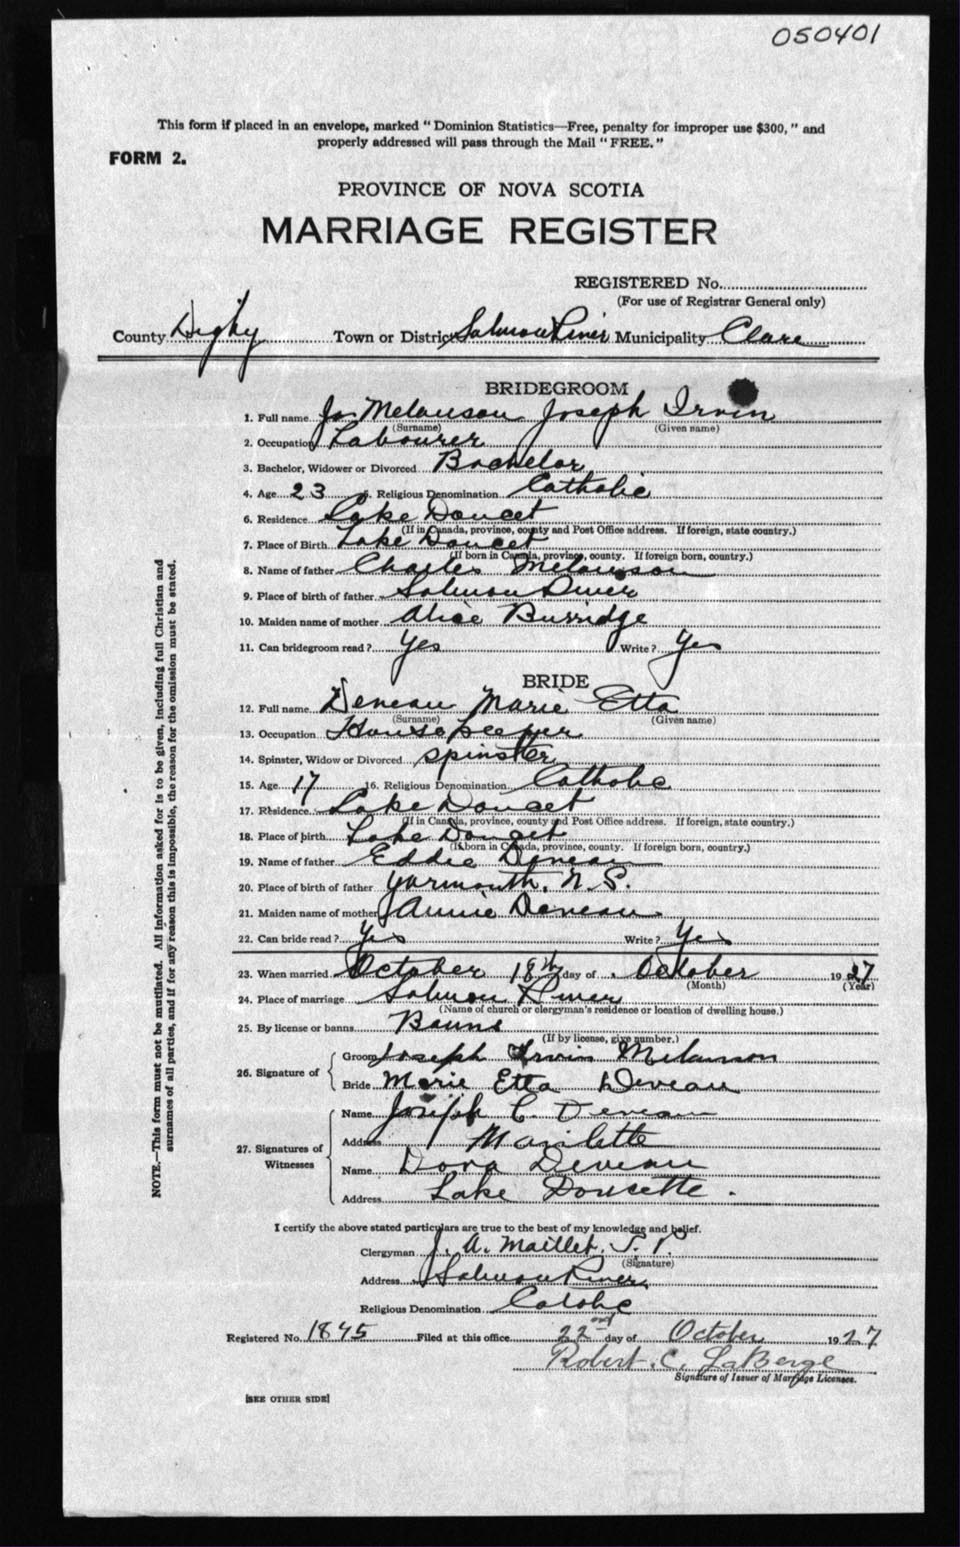 050401
This form if placed in an envelope, marked "Dominion Statistics—Free, penalty for improper use $300," and
properly addressed will pass through the Mail "FREE."
FORM 2.
PROVINCE OF NOVA SCOTIA
MARRIAGE REGISTER
REGISTERED No.
(For use of Registrar General only)
County Digby Town or District Salmon River Municipality Clare
BRIDEGROOM
1. Full name Melanson Joseph Irvin
(Surname) (Given name)
2. Occupation Labourer
3. Bachelor, Widower or Divorced Bachelor
4. Age 23 5. Religious Denomination Catholic
6. Residence Lake Doucet
(If in Canada, province, county and Post Office address. If foreign, state country.)
7. Place of Birth Lake Doucet
(If born in Canada, province, county. If foreign born, country.)
8. Name of father Charles Melanson
9. Place of birth of father Salmon River
10. Maiden name of mother Alice Burridge
11. Can bridegroom read? Yes Write? Yes
BRIDE
12. Full name Deveau Marie Etta
(Surname) (Given name)
13. Occupation Housekeeper
14. Spinster, Widow or Divorced Spinster
15. Age 17 16. Religious Denomination Catholic
17. Residence Lake Doucet
(If in Canada, province, county and Post Office address. If foreign, state country.)
18. Place of birth Lake Doucet
(If born in Canada, province, county. If foreign born, country.)
19. Name of father Eddie Deveau
20. Place of birth of father Yarmouth, N.S.
21. Maiden name of mother Annie Deveau
22. Can bride read? Yes Write? Yes
23. When married October 18th day of October 1927
(Month) (Year)
24. Place of marriage Salmon River
(Name of church or clergyman's residence or location of dwelling house.)
25. By license or banns Banns
(If by license, give number.)
26. Signature of
Groom Joseph Irvin Melanson
Bride Marie Etta Deveau
27. Signatures of Witnesses
Name Joseph C. Deveau
Address Mavilette
Name Dora Deveau
Address Lake Doucette.
I certify the above stated particulars are true to the best of my knowledge and belief.
Clergyman J. A. Maillet,
(Signature)
Address Salmon River
Religious Denomination Catholic
Registered No. 1845 Filed at this office 22nd day of October 1927
Robert. C. LaBerge
Signature of Issuer of Marriage Licenses.
[SEE OTHER SIDE]
NOTE.—This form must not be mutilated. All information asked for is to be given, including full Christian and
surnames of all parties, and if for any reason this is impossible, the reason for the omission must be stated.